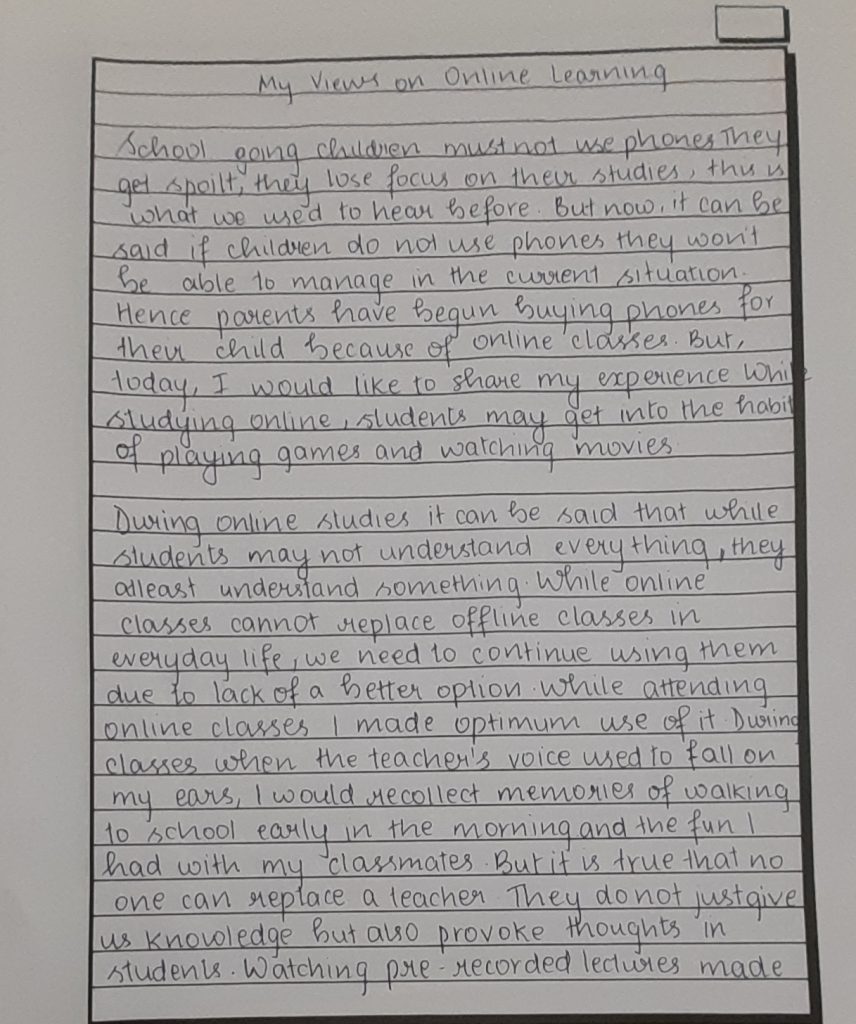 My Views on Online Learning
School going children must not use phones They
get spoilt, they lose focus on their studies, this is
what we used to hear before. But now, it can be
said if children do not use phones they won't
be able to manage in the current situation.
Hence parents have begun buying phones for
their child because of online classes. But,
today, I would like to share my experience while
studying online, students may get into the habit
of playing games and watching movies
During online studies it can be said that while
students may not understand everything, they
atleast understand something. While online
classes cannot replace offline classes in
everyday life, we need to continue using them
due to lack of a better option. While attending
online classes I made optimum use of it. During
classes when the teacher's voice used to fall on
my ears, I would recollect memories of walking
to school early in the morning and the fun I
had with my classmates. But it is true that no
one can replace a teacher. They do not just give
us knowledge but also provoke thoughts in
students. Watching pre-recorded lectures made